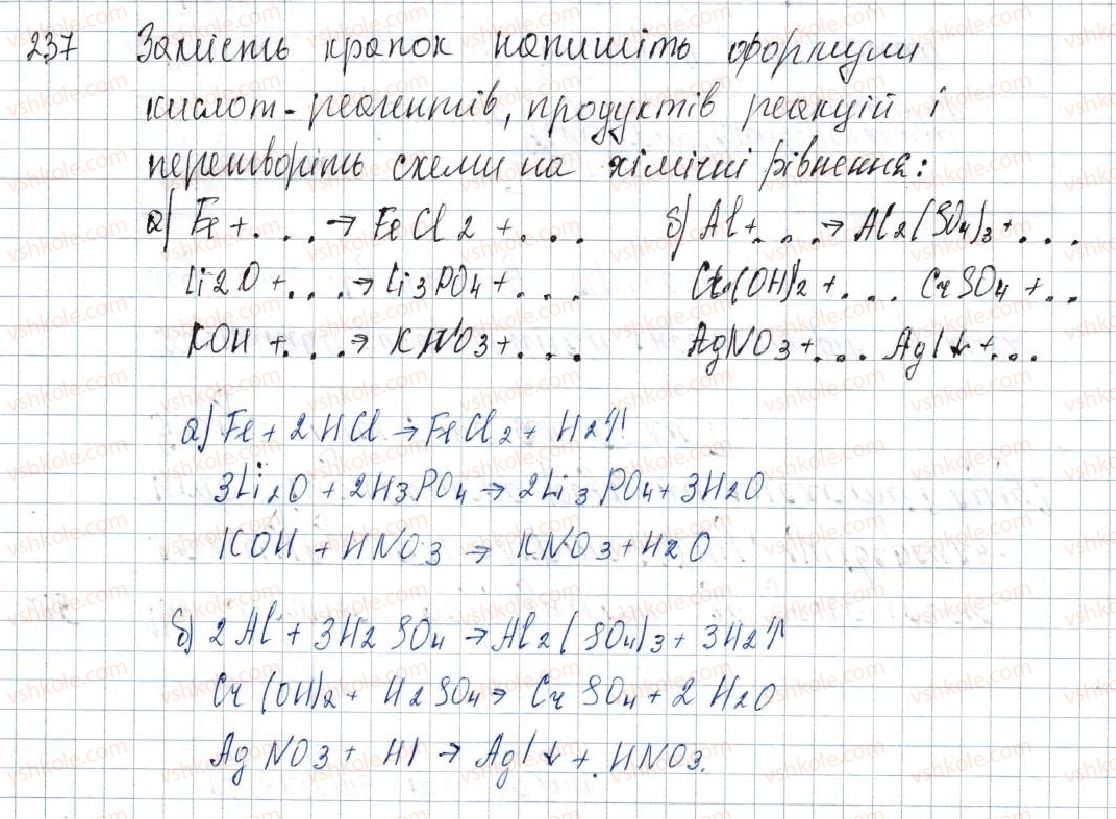 237 Замість крапок напишіть формули
кислот-реагентів, продуктів реакцій і
перетворіть схеми на хімічні рівнення:
а) Fe + . . . → FeCl2 + . . . б) Al + . . . → Al2(SO4)3 + . . .
Li2O + . . . → Li3PO4 + . . . Cr(OH)2 + . . . CrSO4 + . .
KOH + . . . → KNO3 + . . . AgNO3 + . . . AgI↓ + . . .
а) Fe + 2HCl → FeCl2 + H2↑
3Li2O + 2H3PO4 → 2Li3PO4 + 3H2O
KOH + HNO3 → KNO3 + H2O
б) 2Al + 3H2SO4 → Al2(SO4)3 + 3H2↑
Cr(OH)2 + H2SO4 → CrSO4 + 2H2O
AgNO3 + HI → AgI↓ + HNO3.
vshkole.com